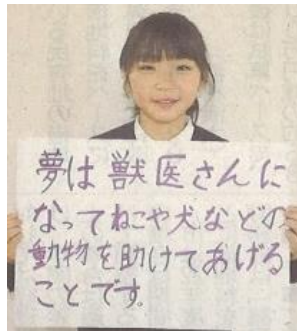 夢は獣医さんに
なってねこや犬などの
動物を助けてあげる
ことです。